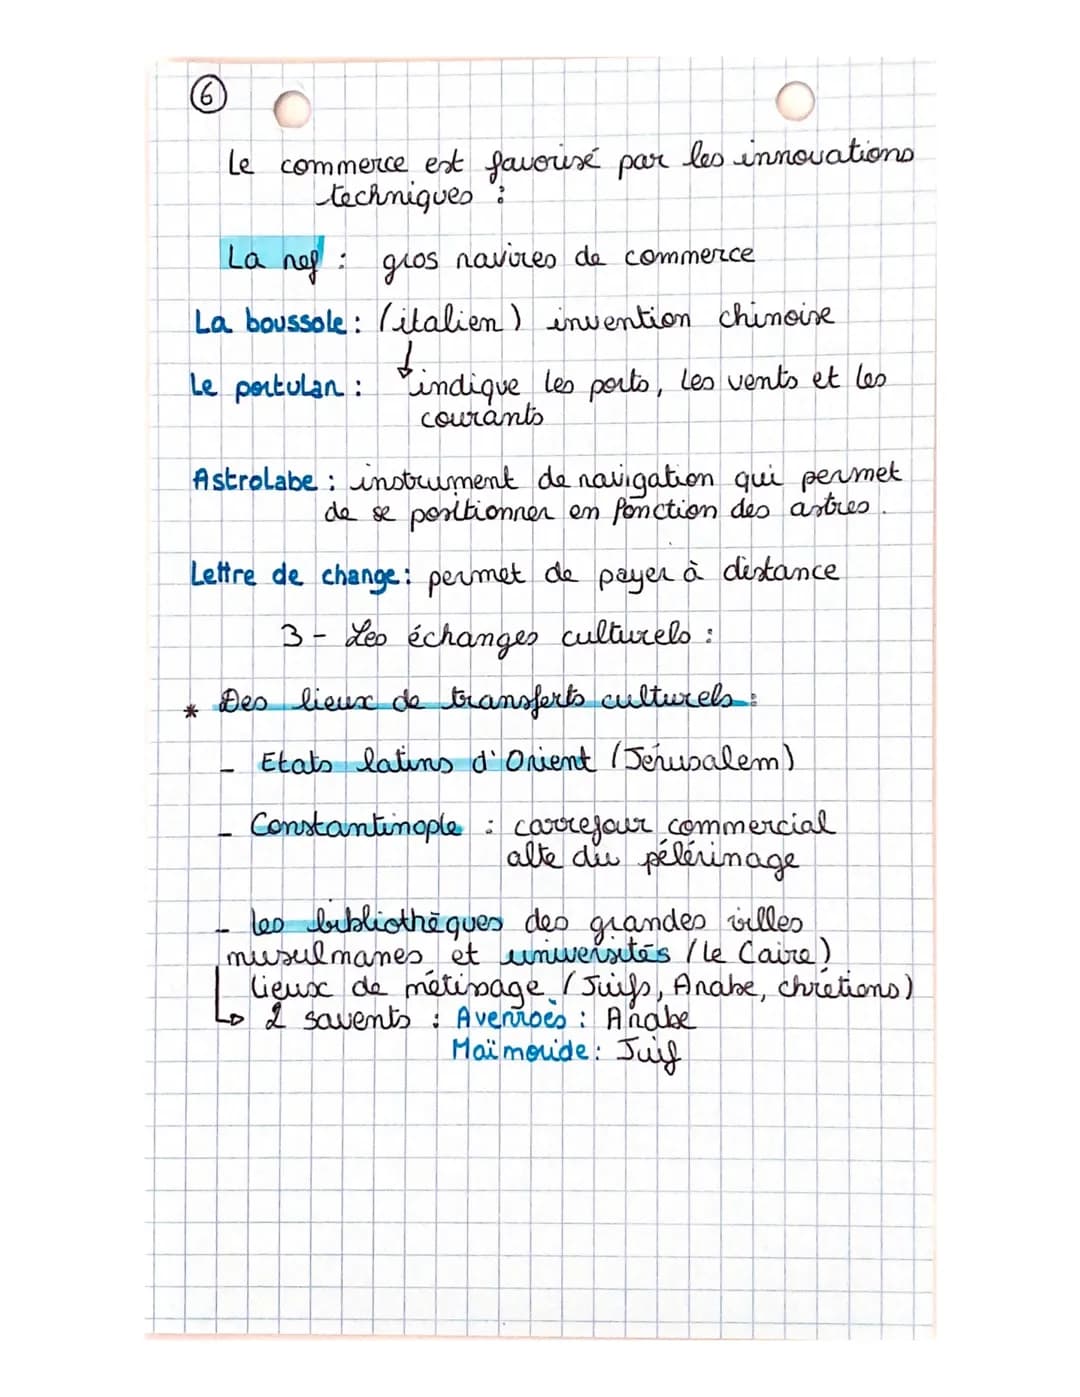 6
Le commerce est favorisé par les innovations
techniques :
La nef : gros navires de commerce
La boussole : (italien) invention chinoise
Le portulan : indique les ports, les vents et les
courants
Astrolabe : instrument de navigation qui permet
de se positionner en fonction des astres.
Lettre de change : permet de payer à distance
3 - Les échanges culturels :
* Des lieux de transferts culturels :
- Etats latins d'Orient (Jérusalem)
- Constantinople : carrefour commercial
alte du pélérinage
- les bibliothèques des grandes villes
musulmanes et universités (le Caire)
lieux de métissage (Juifs, Arabe, chrétiens)
↳ 2 savents : Averroès : Arabe
Maïmonide : Juif